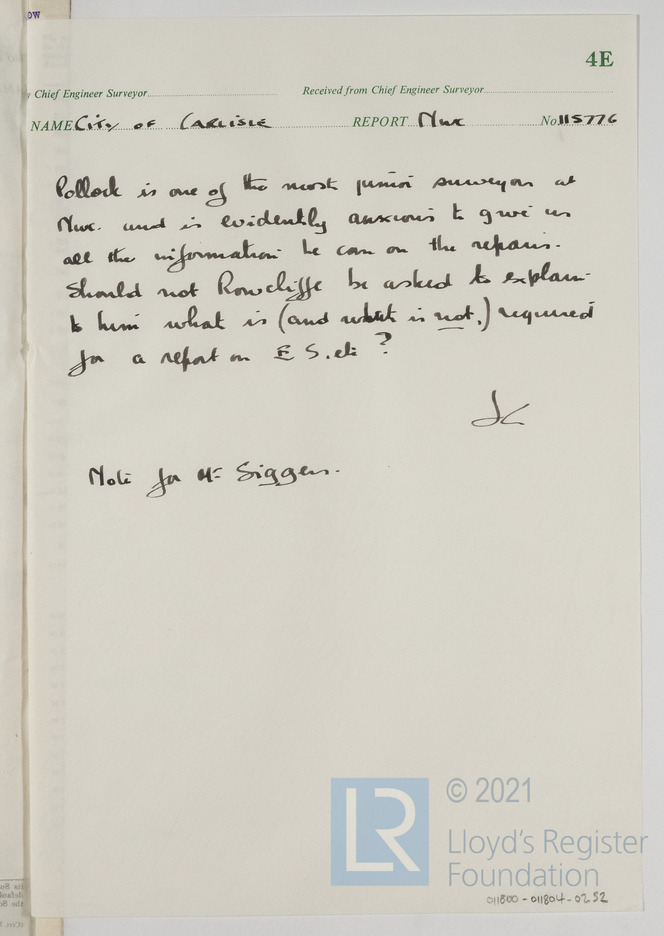 OW
4E
Chief Engineer Surveyor Received from Chief Engineer Surveyor
NAME City of Carlisle REPORT Nwc No. 115776
Pollock is one of the most junior surveyors at
Nwc. and is evidently anxious to give us
all the information he can on the repairs.
Should not Rowcliffe be asked to explain
to him what is (and what is not,) required
for a report on E S. etc ?
Note for Mr Siggers.
© 2021
LR
Lloyd's Register
Foundation
011800-011804-0252